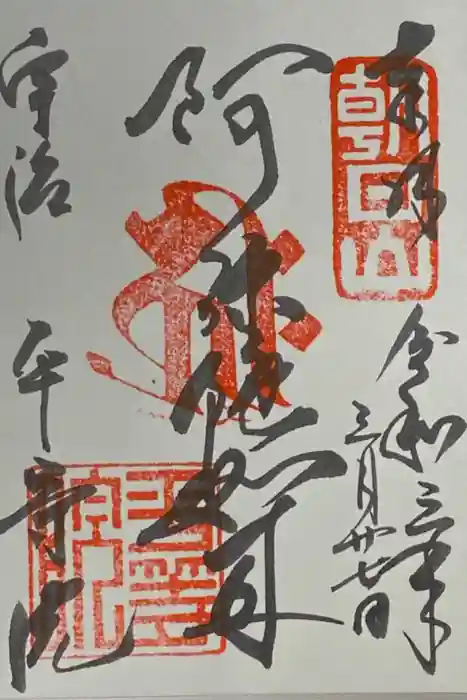 奉拝
朝日山
令和三年
三月廿七日
阿弥陀如来
宇治
平等院